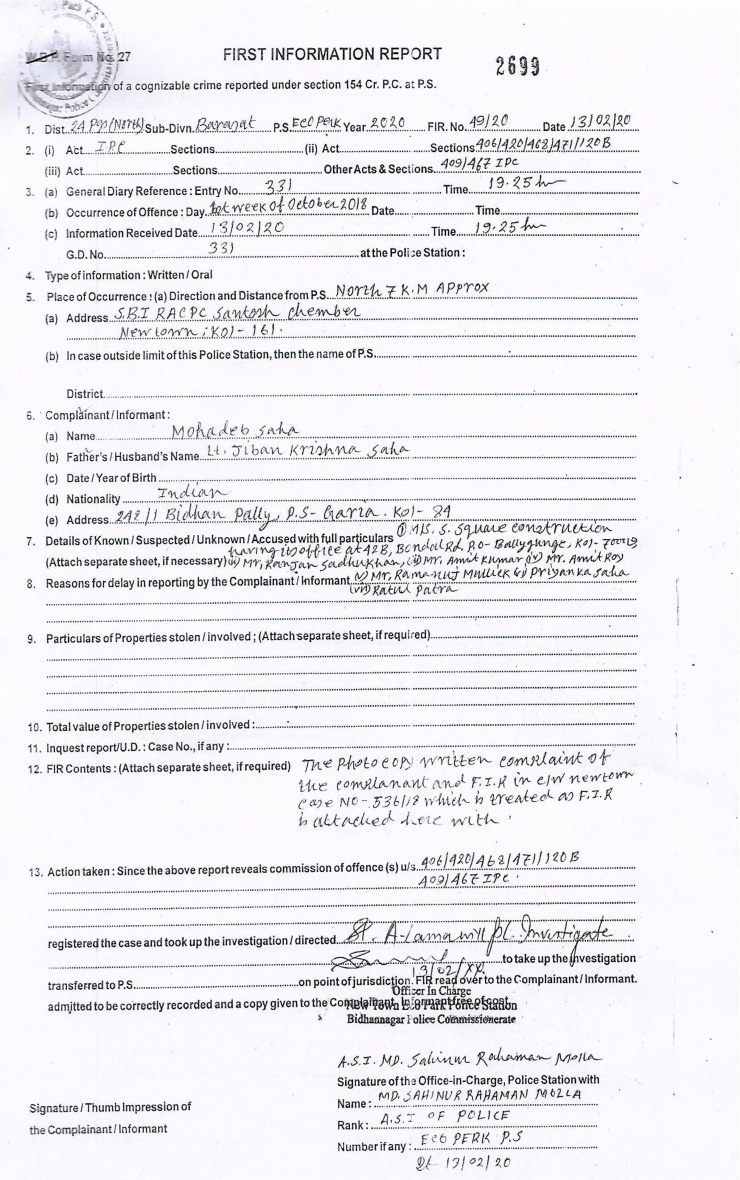 W.B.P. Form No. 27
FIRST INFORMATION REPORT
2699
First Information of a cognizable crime reported under section 154 Cr. P.C. at P.S.
1. Dist. 24 Pgs (North) Sub-Divn. Barasat P.S. Eco Perk Year 2020 FIR. No. 49/20 Date 13/02/20
2. (i) Act IPC Sections (ii) Act Sections 406/420/468/471/120B
(iii) Act Sections Other Acts & Sections 409/467 IPC
3. (a) General Diary Reference : Entry No. 331 Time 19.25 hr
(b) Occurrence of Offence : Day 1st week of October 2018 Date Time
(c) Information Received Date 13/02/20 Time 19.25 hr
G.D. No. 331 at the Police Station :
4. Type of information : Written / Oral
5. Place of Occurrence : (a) Direction and Distance from P.S. North 7 K.M Approx
(a) Address S.B.I RACPC Santosh chember
Newtown; Kol- 161.
(b) In case outside limit of this Police Station, then the name of P.S.
District
6. Complainant / Informant :
(a) Name Mohadeb saha
(b) Father's / Husband's Name Lt. Jiban Krishna saha
(c) Date / Year of Birth
(d) Nationality Indian
(e) Address 242/1 Bidhan Pally, P.S- Garia. Kol- 84
7. Details of Known / Suspected / Unknown / Accused with full particulars (i) M/S. S. Square construction
having its office at 42B, Bondel Rd, P.O- Ballygunge, Kol- 700019
(Attach separate sheet, if necessary) (ii) Mr, Ranjan Sadhukhan, (iii) Mr. Amit Kumar (iv) Mr. Amit Roy
8. Reasons for delay in reporting by the Complainant / Informant (v) Mr. Ramanuj Mullick (vi) Priyanka Saha
(vii) Ratul Patra
9. Particulars of Properties stolen / involved ; (Attach separate sheet, if required)
10. Total value of Properties stolen / involved :
11. Inquest report / U.D. : Case No., if any :
12. FIR Contents : (Attach separate sheet, if required) The photocopy written complaint of
the complanant and F.I.R in c/w newtown
case NO- 536/18 which is treated as F.I.R
is attached here with.
13. Action taken : Since the above report reveals commission of offence (s) u/s. 406/420/468/471/120B
409/467 IPC.
registered the case and took up the investigation / directed Investigate
to take up the investigation
13/02/
transferred to P.S. on point of jurisdiction. FIR read over to the Complainant / Informant.
Officer In Charge
admitted to be correctly recorded and a copy given to the Complainant, Informant free of cost.
New Town Eco Park Police Station
Bidhannagar Police Commissionerate
A.S.I. MD. Sahinur Rahaman Molla
Signature of the Office-in-Charge, Police Station with
Name : MD. SAHINUR RAHAMAN MOLLA
Signature / Thumb Impression of
Rank : A.S.I OF POLICE
the Complainant / Informant
Number if any : ECO PERK P.S
Dt 13/02/20